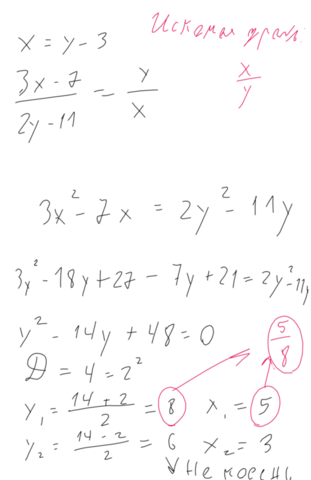 Искомая дробь:
x = y - 3
x/y
(3x - 7)/(2y - 11) = y/x
3x² - 7x = 2y² - 11y
3y² - 18y + 27 - 7y + 21 = 2y² - 11y
y² - 14y + 48 = 0
5/8
D = 4 = 2²
y₁ = (14 + 2)/2 = 8 x₁ = 5
y₂ = (14 - 2)/2 = 6 x₂ = 3
Не